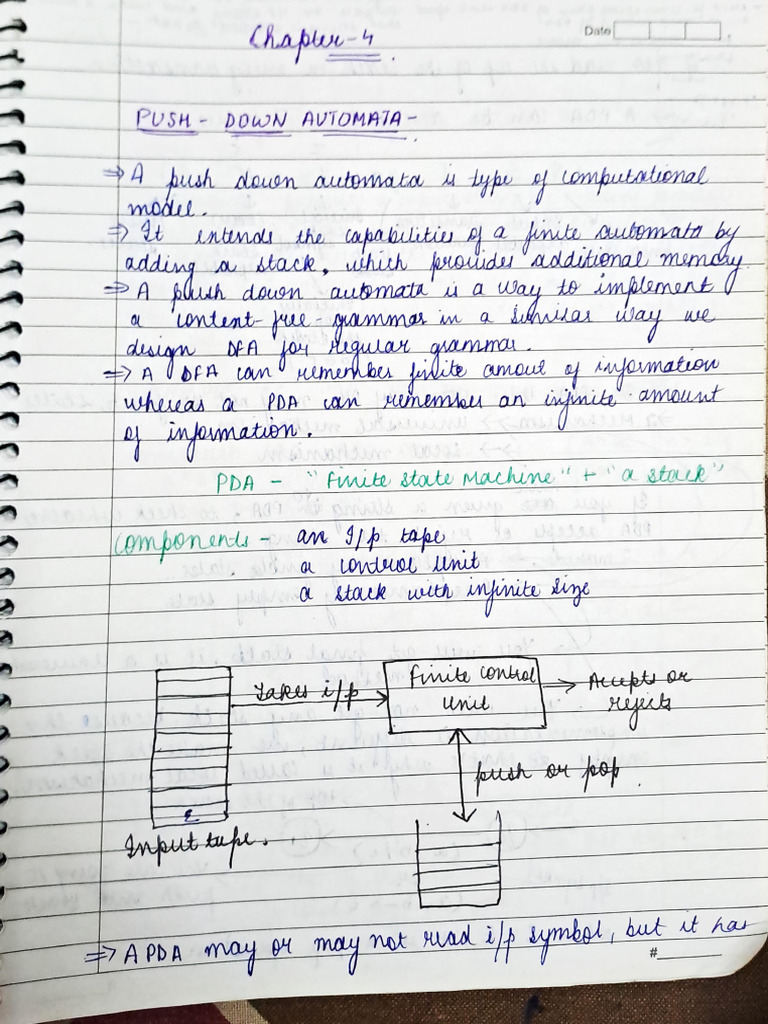 Chapter-4
Date
PUSH - DOWN AUTOMATA -
⇒ A push down automata is type of computational
model.
⇒ It intends the capabilities of a finite automata by
adding a stack, which provides additional memory.
⇒ A push down automata is a way to implement
a content-free-grammar in a similar way we
design DFA for regular grammar.
⇒ A DFA can remember finite amout of information
whereas a PDA can remember an infinite amount
of information.
PDA - "finite state machine" + "a stack"
Components - an I/p tape
a control unit
a stack with infinite size
Takes i/p
finite control
unit
Accepts or
rejects
push or pop
ε
Input tape.
⇒ A PDA may or may not read i/p symbol, but it has
#